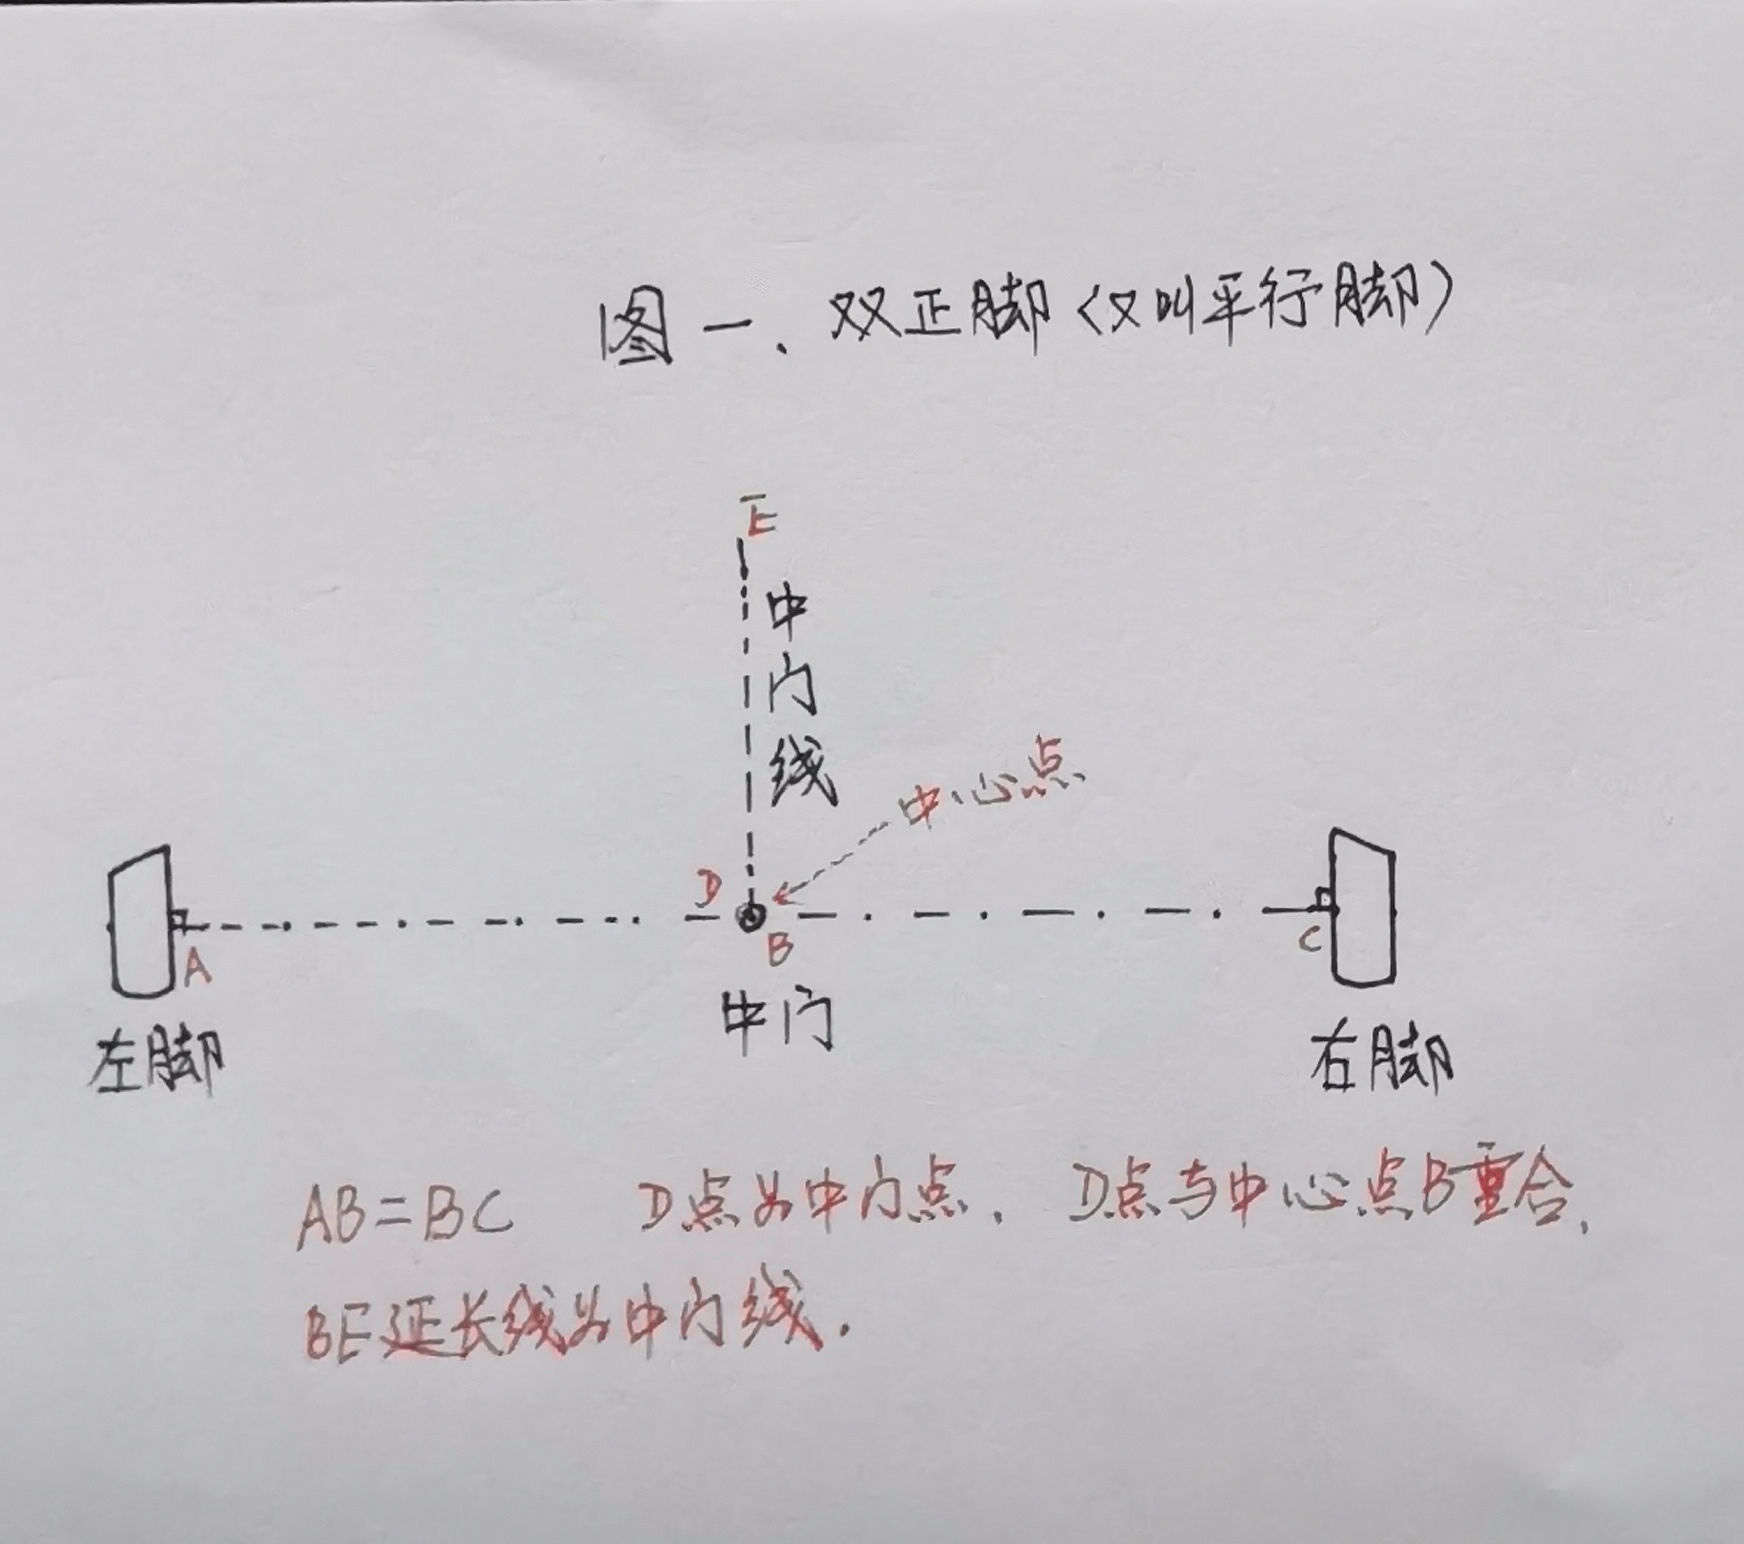 图一、双正脚（又叫平行脚）
E
中门线
中心点
D
B
A
C
中门
左脚
右脚
AB=BC D点为中门点、D点与中心点B重合、
BE延长线为中门线.